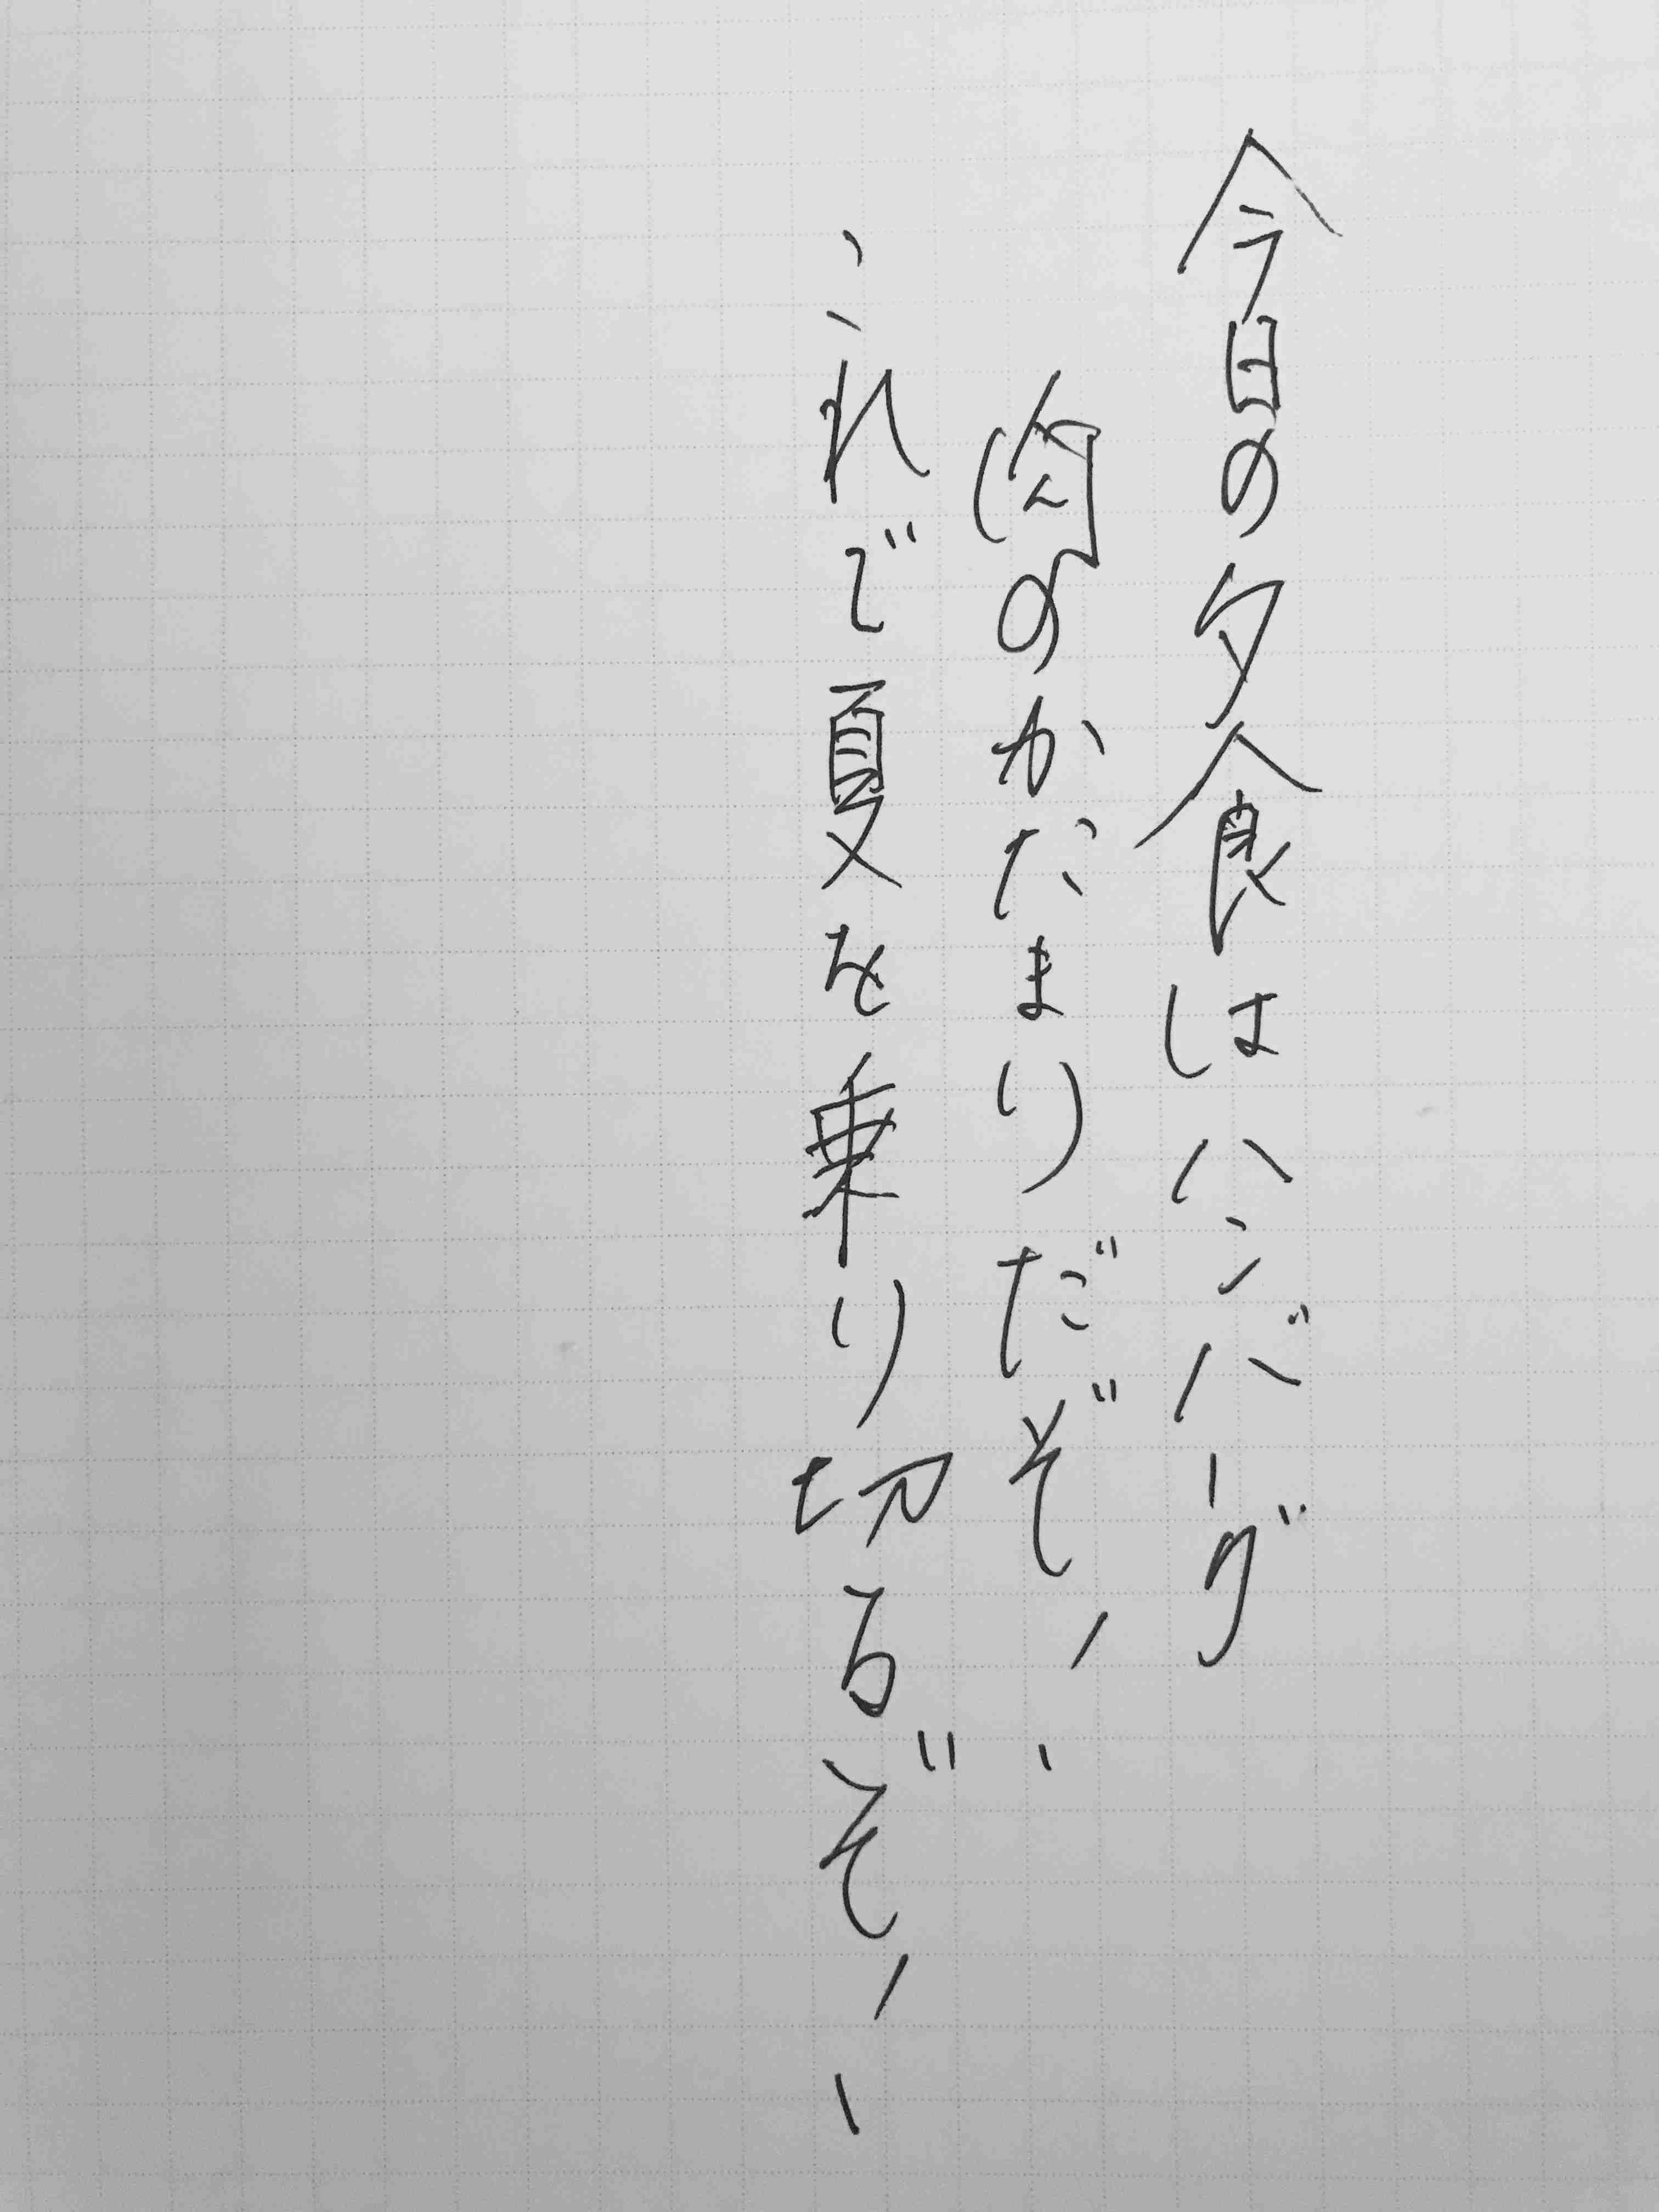 今日の夕食はハンバーグ
肉のかたまりだぞ!
これで夏を乗り切るぞ!